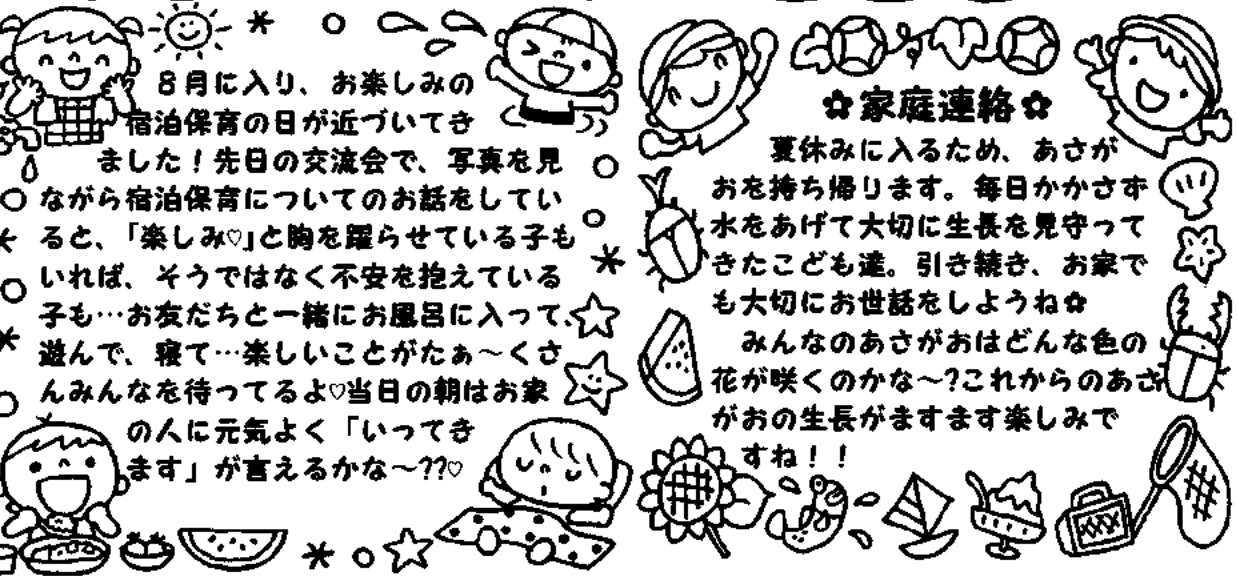 8月に入り、お楽しみの
宿泊保育の日が近づいてき
ました！先日の交流会で、写真を見
ながら宿泊保育についてのお話をしてい
ると、「楽しみ♡」と胸を躍らせている子も
いれば、そうではなく不安を抱えている
子も…お友だちと一緒にお風呂に入って、
遊んで、寝て…楽しいことがたぁ～くさ
んみんなを待ってるよ♡当日の朝はお家
の人に元気よく「いってき
ます」が言えるかな～??♡
✿家庭連絡✿
夏休みに入るため、あさが
おを持ち帰ります。毎日かかさず
水をあげて大切に生長を見守って
きたこども達。引き続き、お家で
も大切にお世話をしようね✿
みんなのあさがおはどんな色の
花が咲くのかな～?これからのあさ
がおの生長がますます楽しみで
すね！！